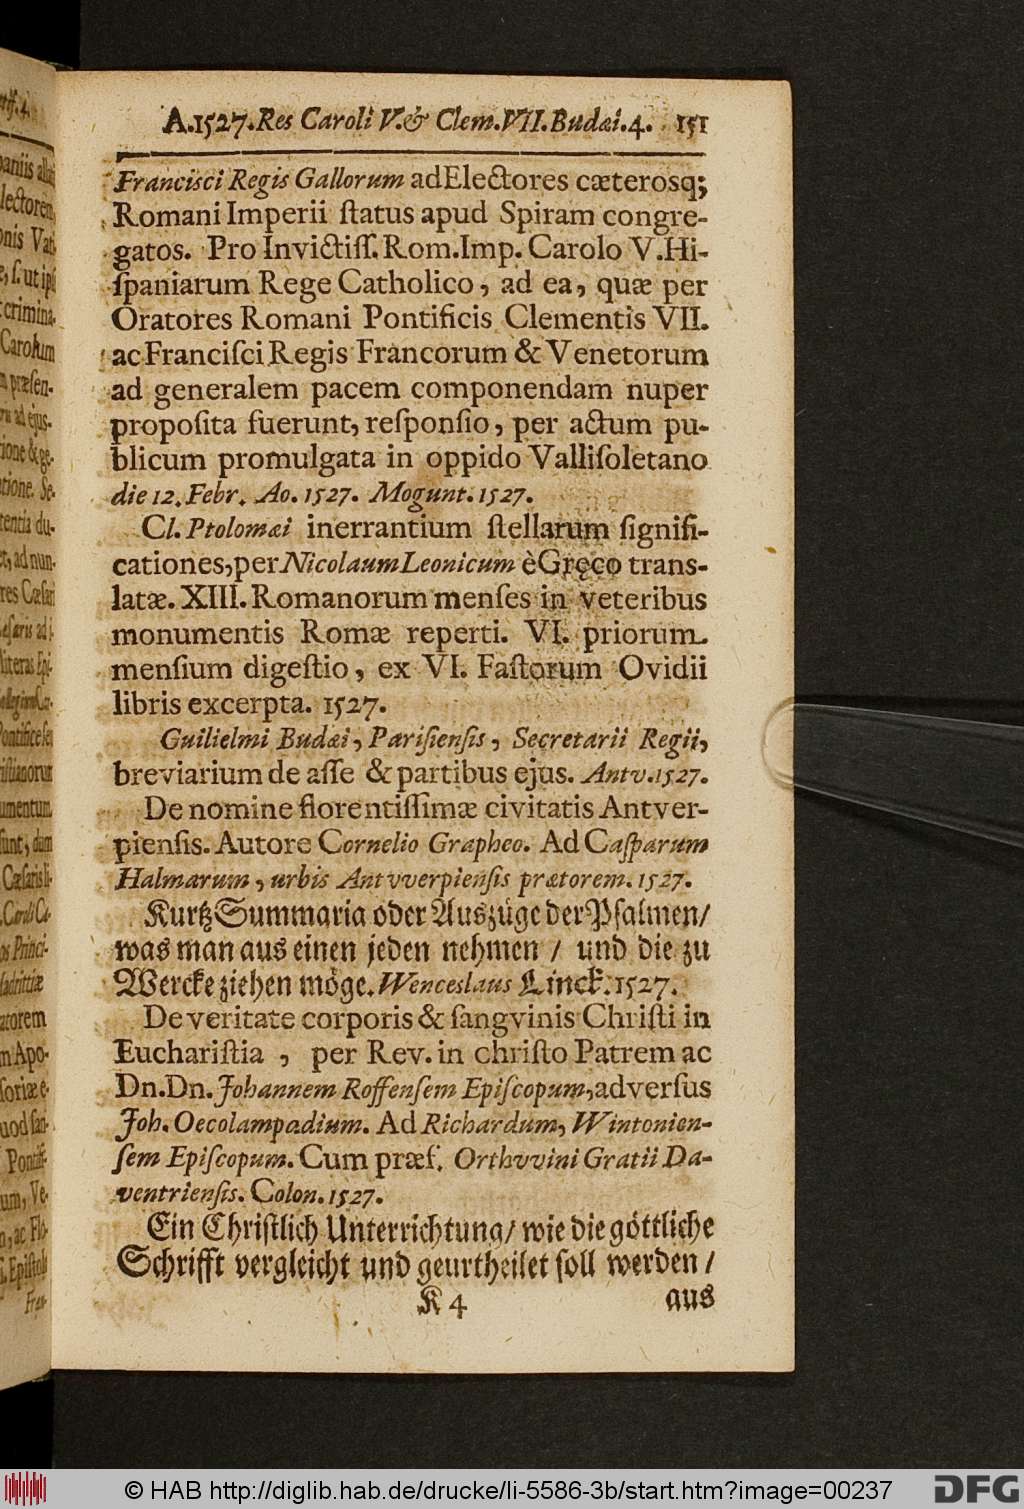 A.1527. Res Caroli V. & Clem. VII. Budæi. 4. 151
Francisci Regis Gallorum ad Electores cæterosq;
Romani Imperii ſtatus apud Spiram congre-
gatos. Pro Invictiſſ. Rom. Imp. Carolo V. Hi-
ſpaniarum Rege Catholico, ad ea, quæ per
Oratores Romani Pontificis Clementis VII.
ac Franciſci Regis Francorum & Venetorum
ad generalem pacem componendam nuper
propoſita fuerunt, reſponſio, per actum pu-
blicum promulgata in oppido Valliſoletano
die 12. Febr. Ao. 1527. Mogunt. 1527.
Cl. Ptolomæi inerrantium ſtellarum ſignifi-
cationes, per Nicolaum Leonicum è Gręco trans-
latæ. XIII. Romanorum menſes in veteribus
monumentis Romæ reperti. VI. priorum
menſium digeſtio, ex VI. Faſtorum Ovidii
libris excerpta. 1527.
Guilielmi Budæi, Pariſienſis, Secretarii Regii,
breviarium de aſſe & partibus ejus. Antv. 1527.
De nomine florentiſſimæ civitatis Antver-
pienſis. Autore Cornelio Grapheo. Ad Caſparum
Halmarum, urbis Antvverpienſis prætorem. 1527.
Kurtz Summaria oder Auszüge der Pſalmen/
was man aus einen jeden nehmen / und die zu
Wercke ziehen möge. Wenceslaus Linck. 1527.
De veritate corporis & ſangvinis Chriſti in
Euchariſtia, per Rev. in chriſto Patrem ac
Dn. Dn. Johannem Roffenſem Epiſcopum, adverſus
Joh. Oecolampadium. Ad Richardum, Wintonien-
ſem Epiſcopum. Cum præf. Orthvvini Gratii Da-
ventrienſis. Colon. 1527.
Ein Chriſtlich Unterrichtung/ wie die göttliche
Schrifft vergleicht und geurtheilet ſoll werden /
K 4 aus
© HAB http://diglib.hab.de/drucke/li-5586-3b/start.htm?image=00237
DFG